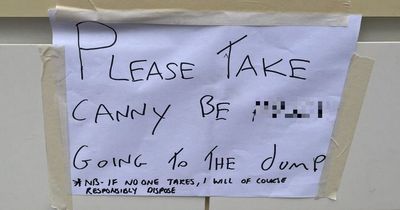 PLEASE TAKE
CANNY BE
GOING TO THE dump
*NB- IF NO ONE TAKES, I WILL OF COURSE
RESPONSIBLY DISPOSE